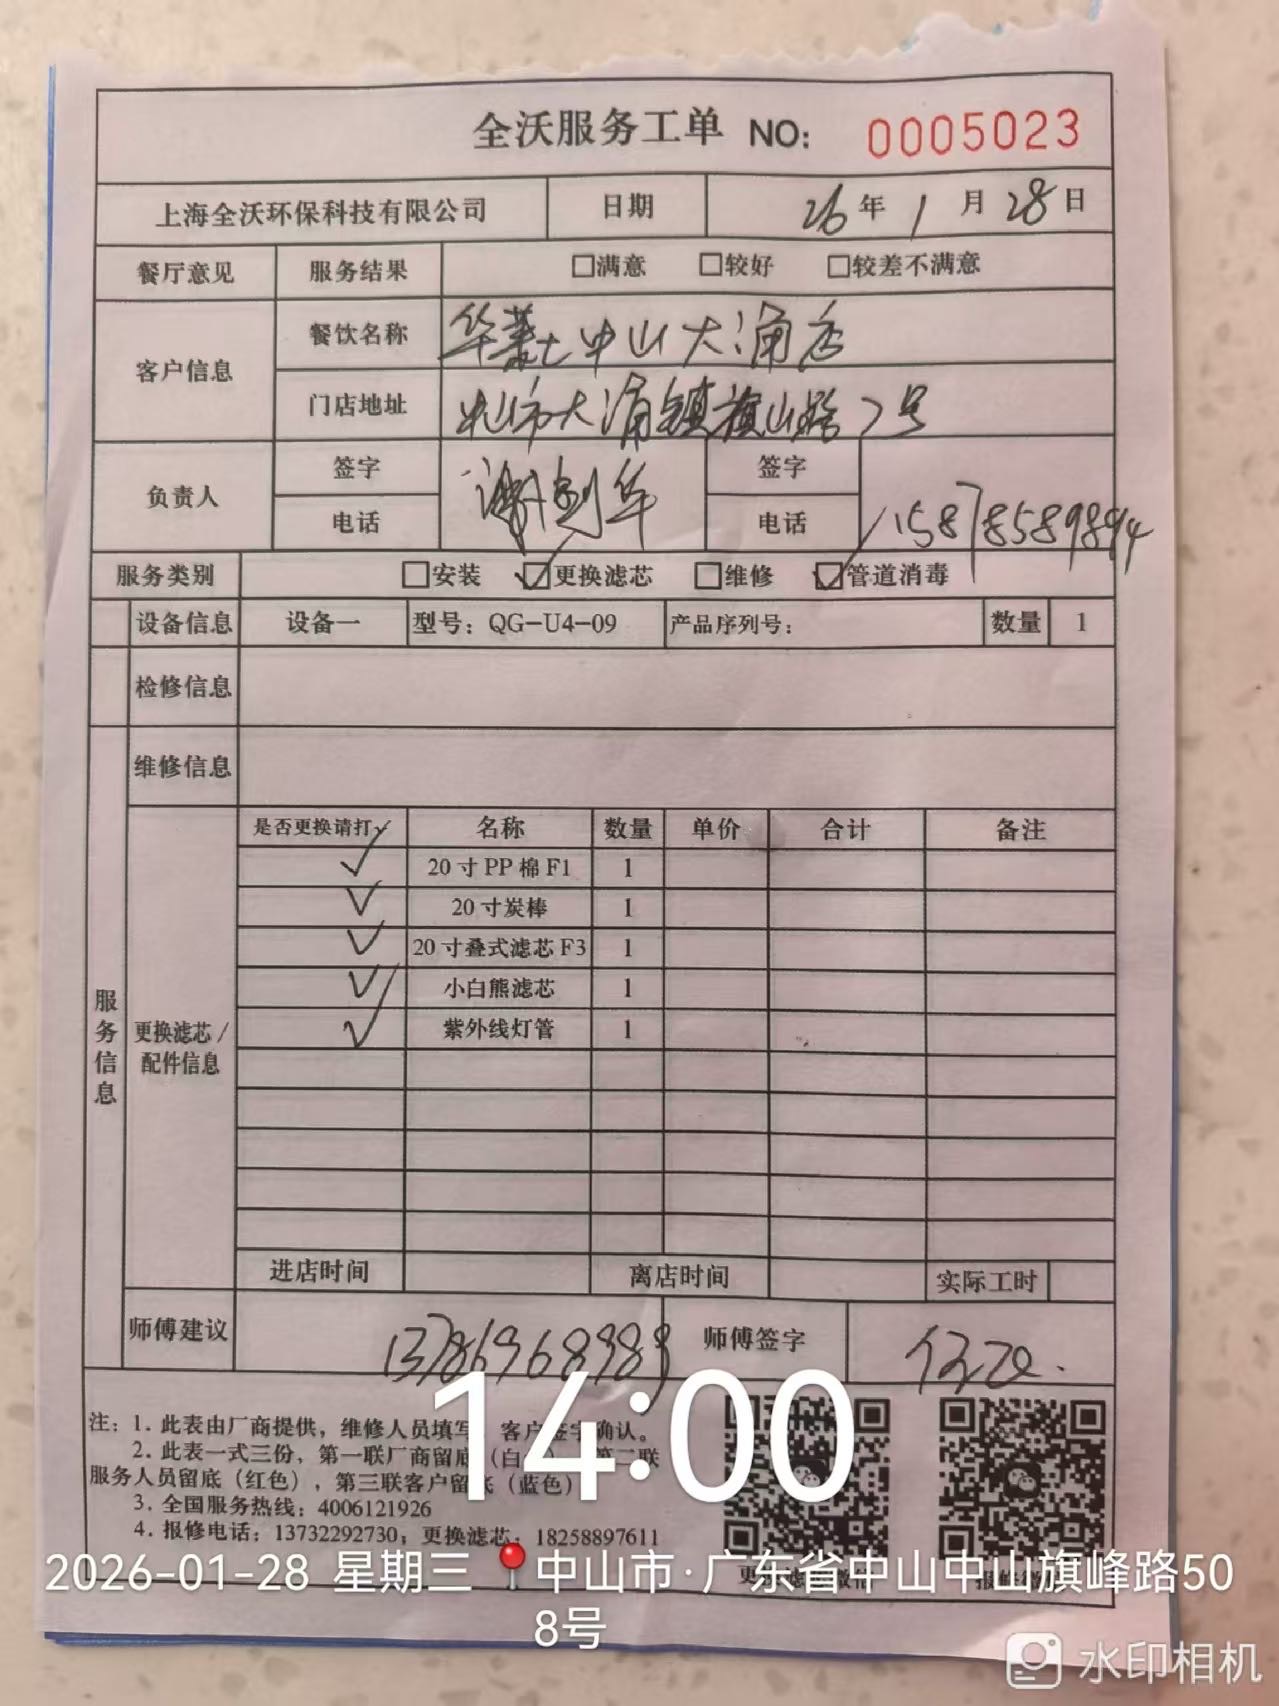 全沃服务工单 NO: 0005023
上海全沃环保科技有限公司 日期 26年1月28日
餐厅意见 服务结果 □满意 □较好 □较差不满意
客户信息 餐饮名称 华莱士中山大涌店
门店地址 中山市大涌镇旗山路7号
负责人 签字 签字
电话 电话 15878589894
服务类别 □安装 ☑更换滤芯 □维修 ☑管道消毒
设备信息 设备一 型号：QG-U4-09 产品序列号： 数量 1
检修信息
维修信息
服务信息
更换滤芯/
配件信息
是否更换请打✓ 名称 数量 单价 合计 备注
✓ 20寸PP棉F1 1
✓ 20寸炭棒 1
✓ 20寸叠式滤芯F3 1
✓ 小白熊滤芯 1
✓ 紫外线灯管 1
进店时间 离店时间 实际工时
师傅建议 师傅签字
注：1. 此表由厂商提供，维修人员填写 客户签字确认。
2. 此表一式三份，第一联厂商留底（白 第二联
服务人员留底（红色），第三联客户留底（蓝色）
3. 全国服务热线：4006121926
4. 报修电话：13732292730；更换滤芯：18258897611
14:00
2026-01-28 星期三 中山市·广东省中山中山旗峰路50
8号
水印相机